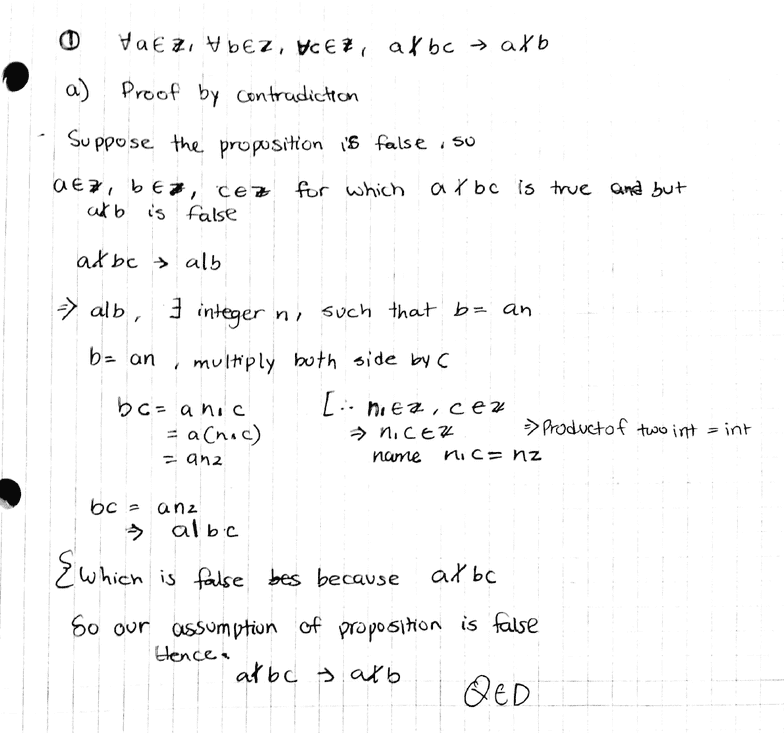 ① ∀a∈ℤ, ∀b∈ℤ, ∀c∈ℤ, a∤bc → a∤b
a) Proof by contradiction
- Suppose the proposition is false, so
a∈ℤ, b∈ℤ, c∈ℤ for which a∤bc is true and but
a∤b is false
a∤bc → a|b
⇒ a|b, ∃ integer n, such that b= an
b= an, multiply both side by C
bc= an₁c [∵ n₁∈ℤ, c∈ℤ
= a(n₁c) ⇒ n₁c∈ℤ ⇒Product of two int = int
= an₂ name n₁c= n₂
bc = an₂
⇒ a|bc
{Which is false bes because a∤bc
So our assumption of proposition is false
Hence.
a∤bc → a∤b QED